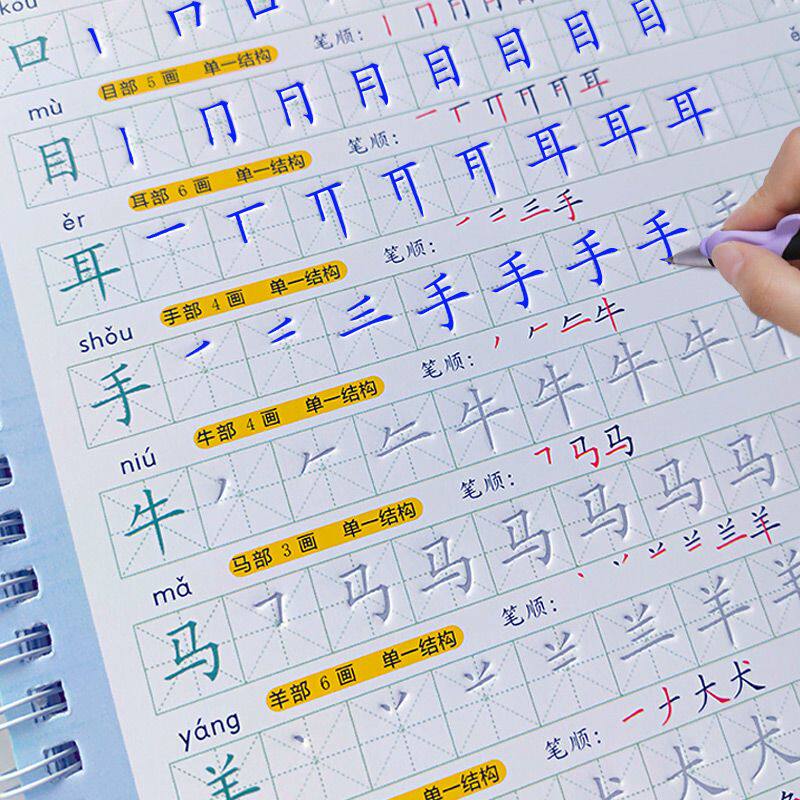 kǒu
口 丨 口
目部 5 画 单一结构 笔顺: 丨 冂
mù
目 丨 冂 月 目 目 目 目
耳部 6 画 单一结构 笔顺: 一 丅 丌 耳
ěr
耳 一 丅 丌 耳 耳 耳
手部 4 画 单一结构 笔顺: 一 二 三 手
shǒu
手 一 二 三 手 手 手 手 手
牛部 4 画 单一结构 笔顺: 丿 𠂉 牛
niú
牛 丿 𠂉 牛 牛 牛 牛 牛
马部 3 画 单一结构 笔顺: ㇕ 马 马
mǎ
马 ㇕ 马 马 马 马 马 马
羊部 6 画 单一结构 笔顺: 丶 丷 䒑 兰 羊
yáng
羊 丶 丷 䒑 兰 羊 羊
单一结构 笔顺: 一 ナ 大 犬
犬 犬